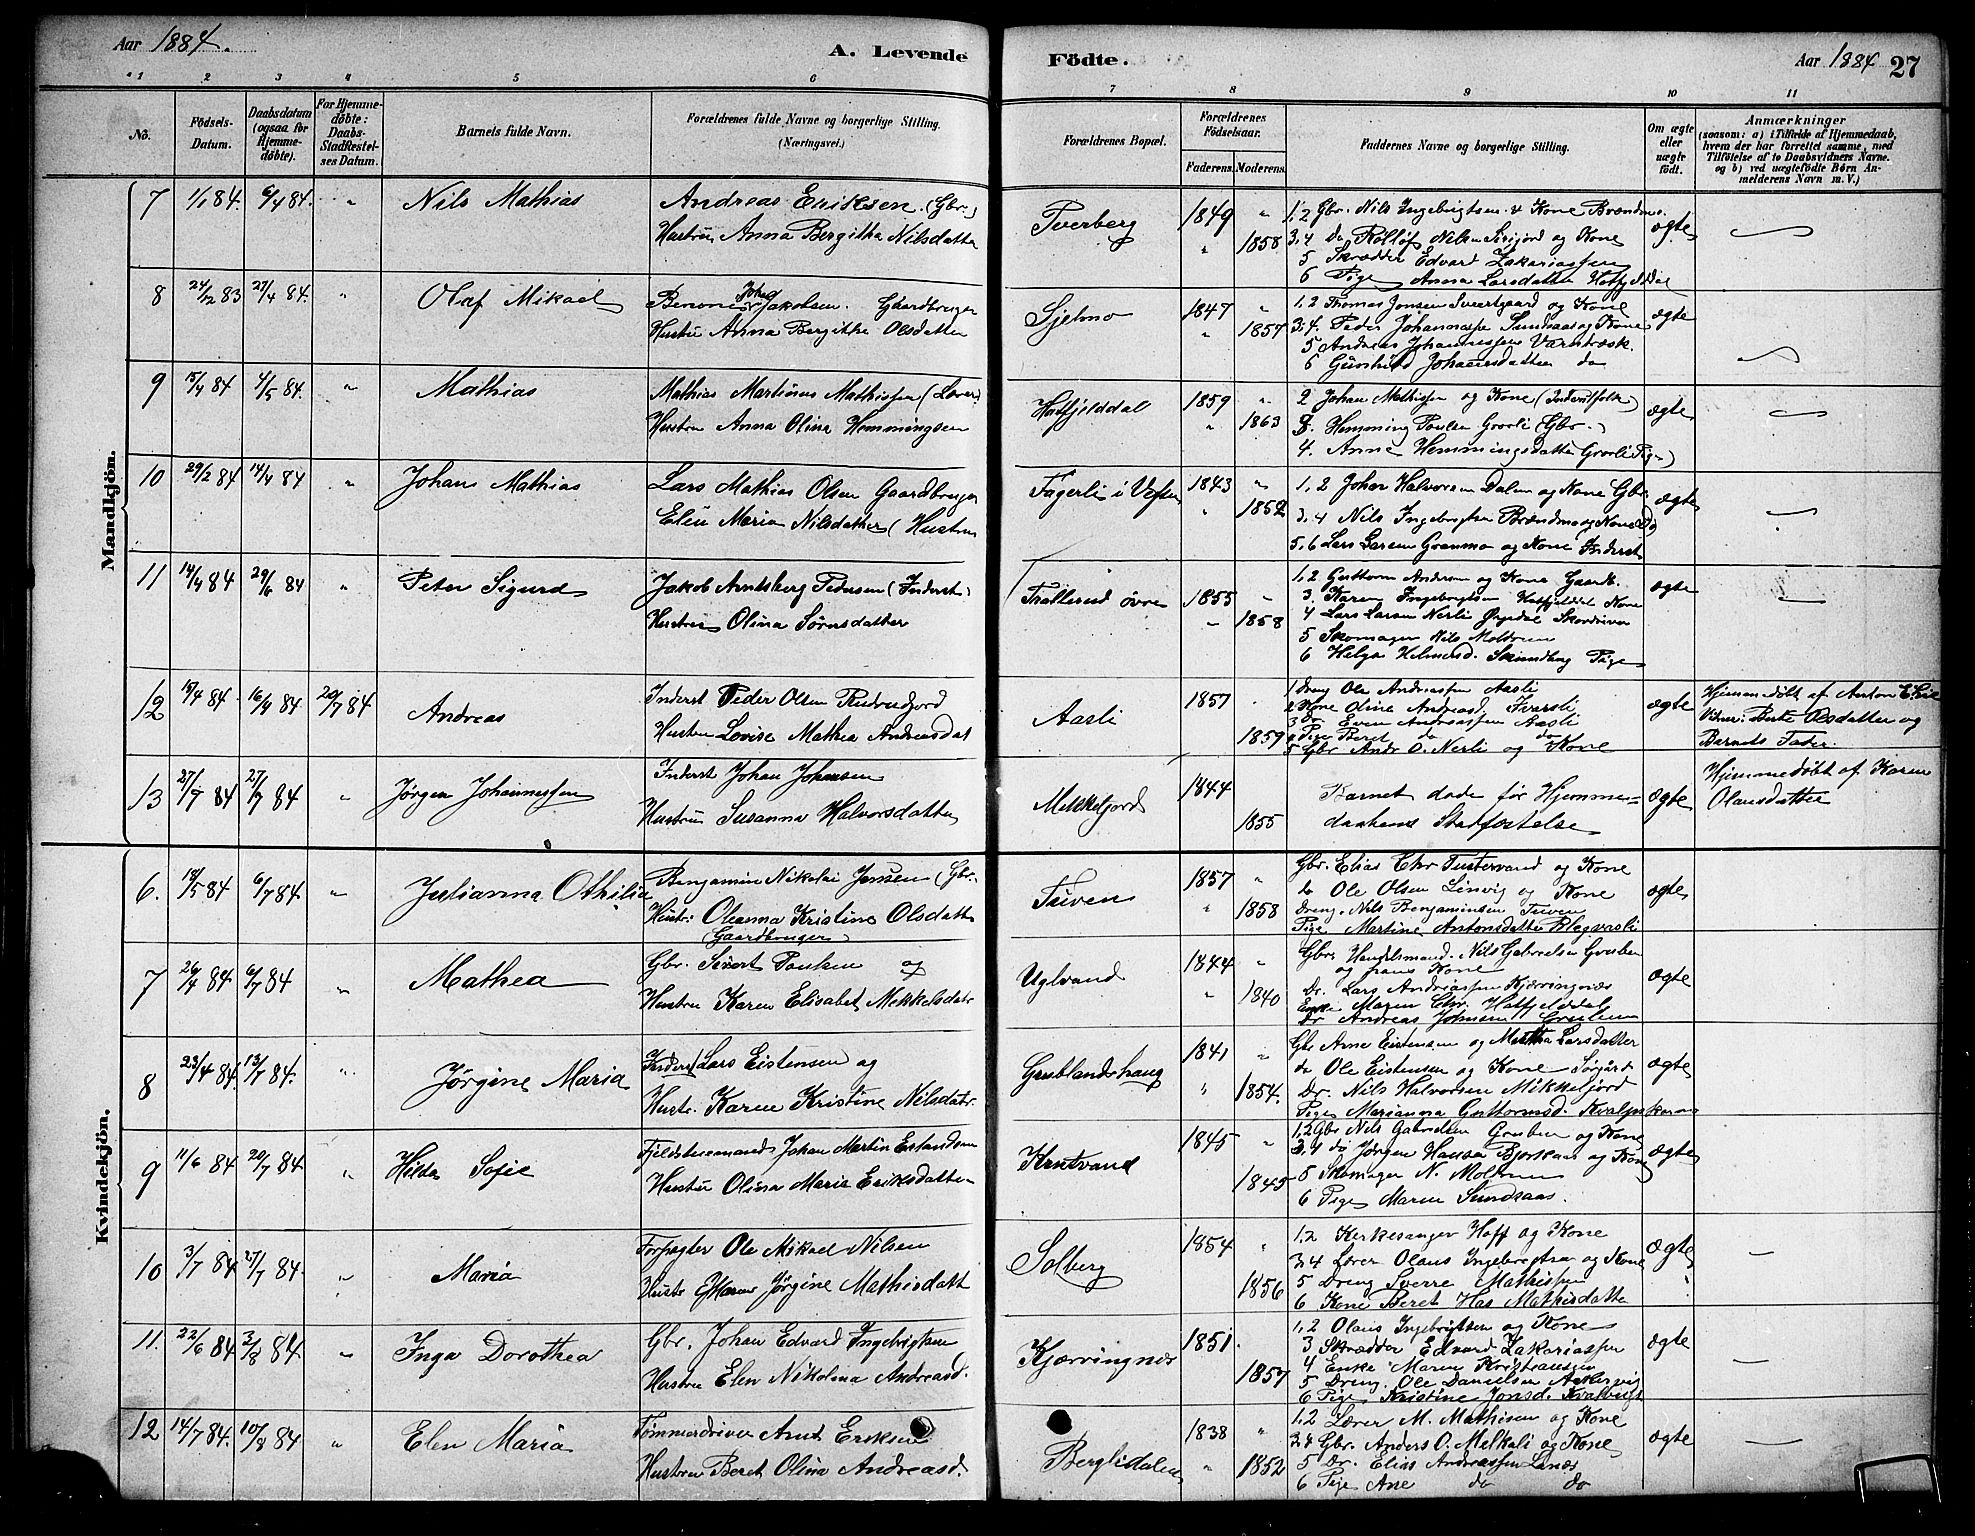 Aar 1884.
A. Levende
Födte.
Aar 1884
27
1 2 3 4 5 6 7 8 9 10 11
No.
Födsels-Datum.
Daabsdatum (ogsaa for Hjemme-döbte).
For Hjemme-döbte: Daabs-Stadfæstel-ses Datum.
Barnets fulde Navn.
Forældrenes fulde Navne og borgerlige Stilling.
(Næringsvei.)
Forældrenes Bopæl.
Forældrenes Födselsaar.
Faderens. Moderens.
Faddernes Navne og borgerlige Stilling.
Om ægte eller uægte födt.
Anmærkninger
(saasom: a) i Tilfælde af Hjemmedaab,
hvem der har forrettet samme, med
Tilföielse af to Daabsvidners Navne.
og b) ved uægtefödte Börn An-
melderens Navn m. V.)
Mandkjön.
7 1/1 84. 6/4 84. " Nils Mathias Andreas Eriksen (Gbr.) Tverberg 1849 " 1,2 Gbr. Nils Ingebrigtsen & Kone Brændmo. ægte
Hustru Anna Bergitha Nilsdatter " 1858 3,4 Do Rolløf Nilsen og Kone
5 Skrædder Edvard Zakariassen
6 Pige Anna Larsdatter Hatfjelddal
8 24/12 83 27/4 84. " Olaf Mikael Benoni Johan Jakobsen. Gaardbruger Sjelmo 1847 " 1,2 Thomas Jonsen Svartgaard og Kone ægte
Hustru Anna Bergithe Olsdatter " 1857 3,4. Peder Johannesse Sundsaas og Kone
5 Andreas Johannessen
6 Gunhild Johannesdatter do
9 15/4 84 4/5 84. " Mathias Mathias Martinus Mathissen (Lærer) Hatfjelddal 1859 " 2 Johan Mathissen og Kone (Inderstfolk) ægte
Hustru Anna Olina Hemmingsen " 1863 3. Hemming Poulsen Grovli (Gbr.)
4. Anne Hemmingsdatter Grovli Pige)
10 29/2 84 14/4 84 " Johans Mathias Lars Mathias Olsen Gaardbruger Fagerli i Vefsen 1843 " 1,2 Johan Halvorsen Dalen og Kone Gbr. ægte
Elen Maria Nilsdatter (Hustru " 1852 3,4 Nils Ingebrigtsen Brændmo og Kone Do
5,6 Lars Larsen Granmo og Kone Inderst
11 14/4 84 29/6 84 " Peter Sigurd Jakob Arntsberg Pedersen (Inderst) Trallerud övre 1855 " 1,2 Guttorm Andersen og Kone Gaardb. ægte
Hustru Olina Sörensdatter " 1858 3. Karen Ingebrigtsen Hatfjelddal Kone
4 Lars Larsen Nerli
5 Skomager Nils Moldrem
6 Helga Helmersd. Pige
12 15/4 84. 16/4 84 20/7 84 Andreas Inderst Peder Olsen Aasli 1857 . 1 Dreng Ole Andreassen Aasli ægte Hjemmedöbt af Anton
Hustru Lovise Mathea Andreasdat 1859 2 Kone Olina Andreasd. Vidner: Berte Olsdatter og
3 Dr. Even Andreassen Aasli Barnets Fader.
4 Pige Beret do do
5 Gbr Andr O. Nerli og Kone
13 27/7 84 27/7 84 " Jørgen Johannessen Inderst Johan Johansen Mikkelfjord 1844 Barnet døde før Hjemme- ægte Hjemmedöbt af Karen
Hustru Susanna Halvorsdatter 1855 daabens Stadfæstelse Olausdatter
Kvindekjön.
6. 18/5 84 6/7 84. " Julianna Othilia Benjamin Nikolai Jensen (Gbr. Tiven 1857 " Gbr. Elias Chr Tustervand og Kone ægte
Hustr: Oleanna Kristine Olsdatt " 1858 do Ole Olsen Linvig og Kone
(Gaardbruger) Dreng. Nils Benjaminsen Tiven
Pige Martine Antonsdatter
7 26/4 84 6/7 84 " Mathea Gbr. Sivert Paulsen og Uglvand 1844 " Gbr, Handelsmand. Nils Gabrielsen Gruben ægte
Hustru Karen Elisabet Mikkelsdatr " 1840 og hans Kone
Dr. Lars Andreassen Kjærringnæs
Enke Maren Chr. Hatfjelddal
Dr Andreas Johnsen Gruben
8 23/4 84. 13/7 84. " Jørgine Maria Inderst Lars Eistensen og Grublandshaug 1841 " Gbr Arne Eistensen og Martha Larsdatter ægte
Hustr. Karen Kristine Nilsdatr. " 1854. do Ole Eistensen og Kone Sørgård
Dr. Nils Halvorsen Mikkeljord
Pige Marianna Guttormsd.
9 11/6 84 20/7 84 " Hilda Sofie Fjeldstuemand Johan Martin Krutvand 1845 " 1,2 Gbr Nils Gabrielsen Gruben og Kone ægte
Hustru Olina Maria Eriksdatter 1845 3,4 do Jørgen Hansen Bjorkaas og Kone
5 Skomager N. Moldrem
6 Pige Maren Sundsaas.
10 3/7 84 27/7 84. " Maria Forpagter Ole Mikael Nilsen Solberg 1854 " 1,2 Kirkesanger Hoff og Kone ægte
Hustr Maren Jørgine Mathisdatt 1856 3,4 Lærer Olaus Ingebrigtsen og Kone
5 Dreng Sverre Mathissen
6 Kone Beret Mathisdatter
11. 22/6 84 3/8 84. " Inga Dorothea Gbr. Johan Edvard Ingebrigtsen Kjærringnæs 1851. 1,2 Olaus Ingebrigtsen og Kone ægte
Hustru Elen Nikolina Andreasd. 1857 3 Skrædder Edvard Zakariassen
4 Enke Maren Kristiansen
5 Dreng Ole Danielsen
6 Pige Kristine Jonsd.
12 14/7 84. 10/8 84 " Elen Maria Tömmerdriver Arnt Eriksen Berglidalen 1838 " 1,2 Lærer M. Mathisen og Kone ægte
Hustru Beret Olina Andreasd. " 1852 3,4 Gbr. Anders O. og Kone
5 Dr. Elias Andreassen
6 Pige Ane do do